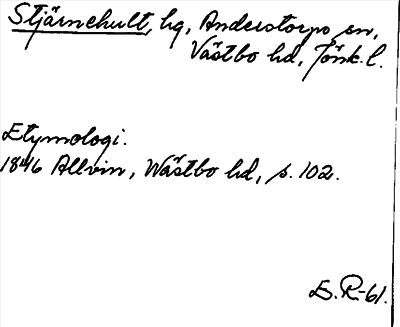 Stjärnehult, hg, Anderstorps sn,
Västbo hd, Jönk. l.
Etymologi.
1846 Allvin, Wästbo hd, s. 102.
E.R.-61.